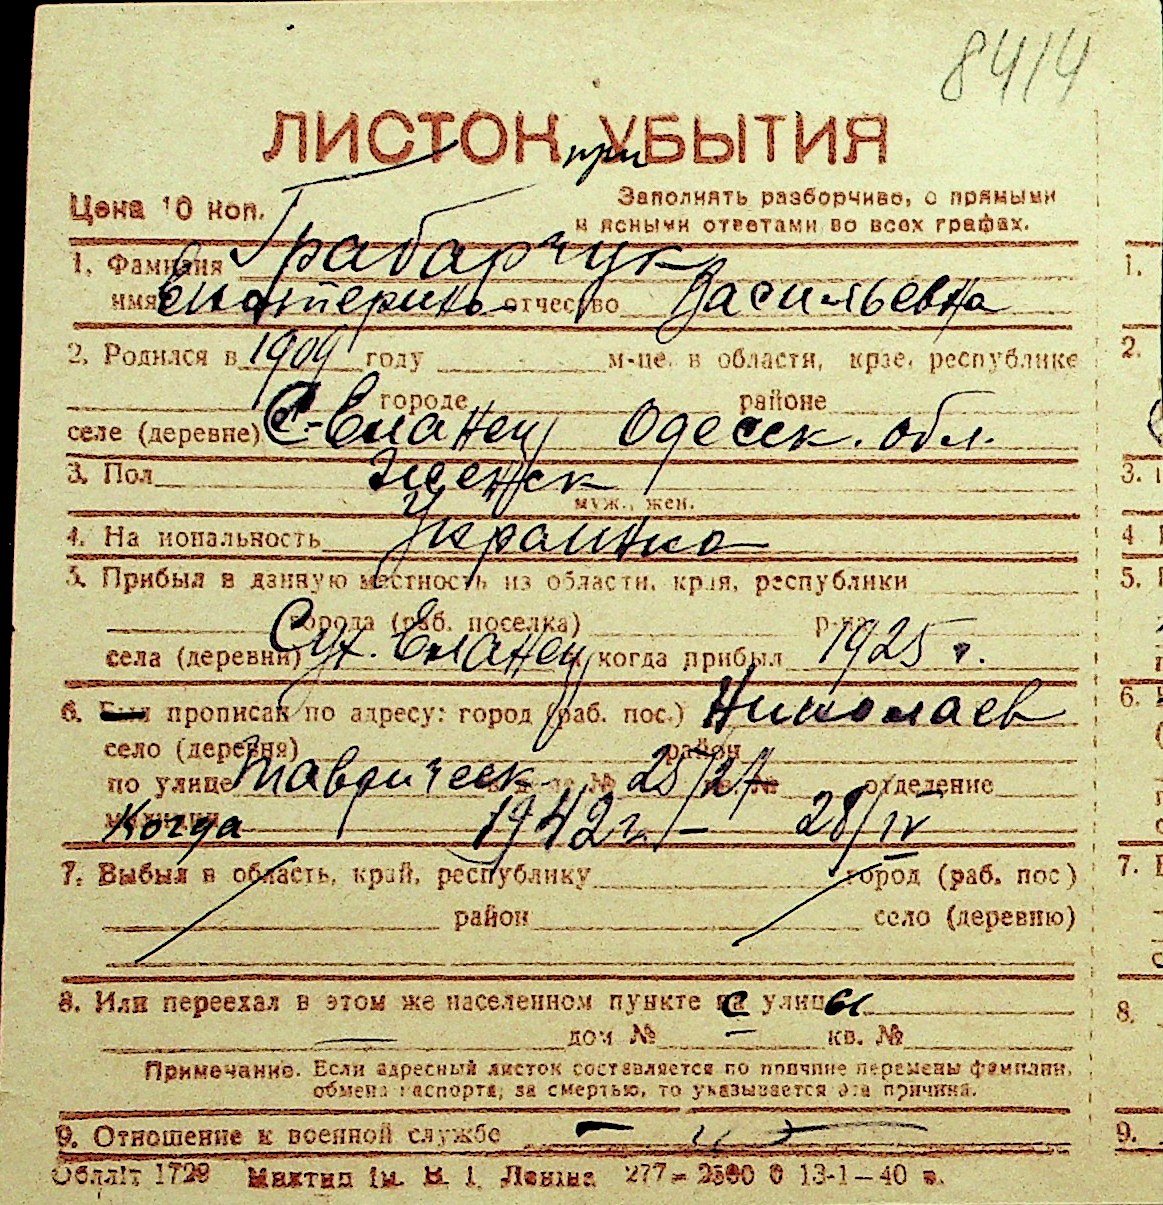 8414
ЛИСТОК УБЫТИЯ
при
Цена 10 коп.
Заполнять разборчиво, с прямыми
и ясными ответами во всех графах.
1. Фамилия Грабарчук
имя Екатерина отчество Васильевна
2. Родился в 1909 году м-це, в области, крае, республике
городе районе
селе (деревне) С-Еланец Одесск. обл.
3. Пол женск
муж., жен.
4. Национальность Украинка
5. Прибыл в данную местность из области, края, республики
города (раб. поселка) р-на
села (деревни) Сух. Еланец когда прибыл 1925 г.
6. Был прописан по адресу: город (раб. пос.) Николаев
село (деревня) район
по улице Таврическ № 25/27 отделение
милиции Когда 1942 г. – 28/IV
7. Выбыл в область, край, республику город (раб. пос)
район село (деревню)
8. Или переехал в этом же населенном пункте с улицы
дом № – кв. №
Примечание. Если адресный листок составляется по причине перемены фамилии,
обмена паспорта, за смертью, то указывается эта причина.
9. Отношение к военной службе –
Обліт 1729 Миктип ім. В. І. Леніна 277 – 2500 0 13-1–40 г.
1.
2.
3.
4
5.
6.
7.
8.
9.